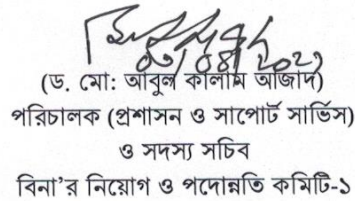 (ড. মো: আবুল কালাম আজাদ)
পরিচালক (প্রশাসন ও সাপোর্ট সার্ভিস)
ও সদস্য সচিব
বিনা'র নিয়োগ ও পদোন্নতি কমিটি-১